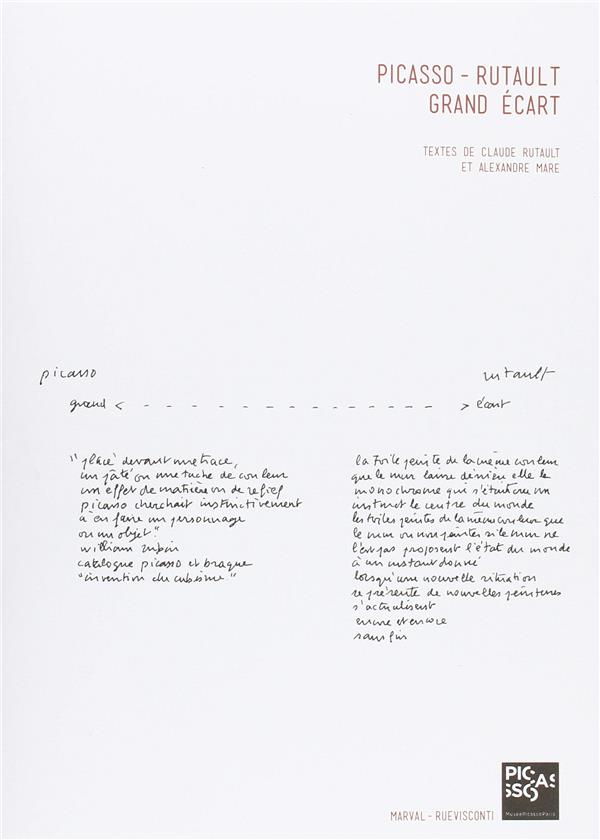 PICASSO – RUTAULT
GRAND ÉCART
TEXTES DE CLAUDE RUTAULT
ET ALEXANDRE MARE
picasso
rutault
grand < - - - - - - - - - - - - - - > écart
"placé devant une trace,
un pâté ou une tache de couleur
un effet de matière ou de relief
picasso cherchait instinctivement
à en faire un personnage
ou un objet".
william rubin
catalogue picasso et braque
"invention du cubisme"
la toile peinte de la même couleur
que le mur laisse derrière elle le
monochrome qui s'était cru un
instant le centre du monde
les toiles peintes de la même couleur que
le mur ou non peintes si le mur ne
l'est pas proposent l'état du monde
à un instant donné
lorsqu'une nouvelle situation
se présente de nouvelles peintures
s'actualisent
encore et encore
sans fin
PICAS
SSO
MuséePicassoParis
MARVAL – RUEVISCONTI